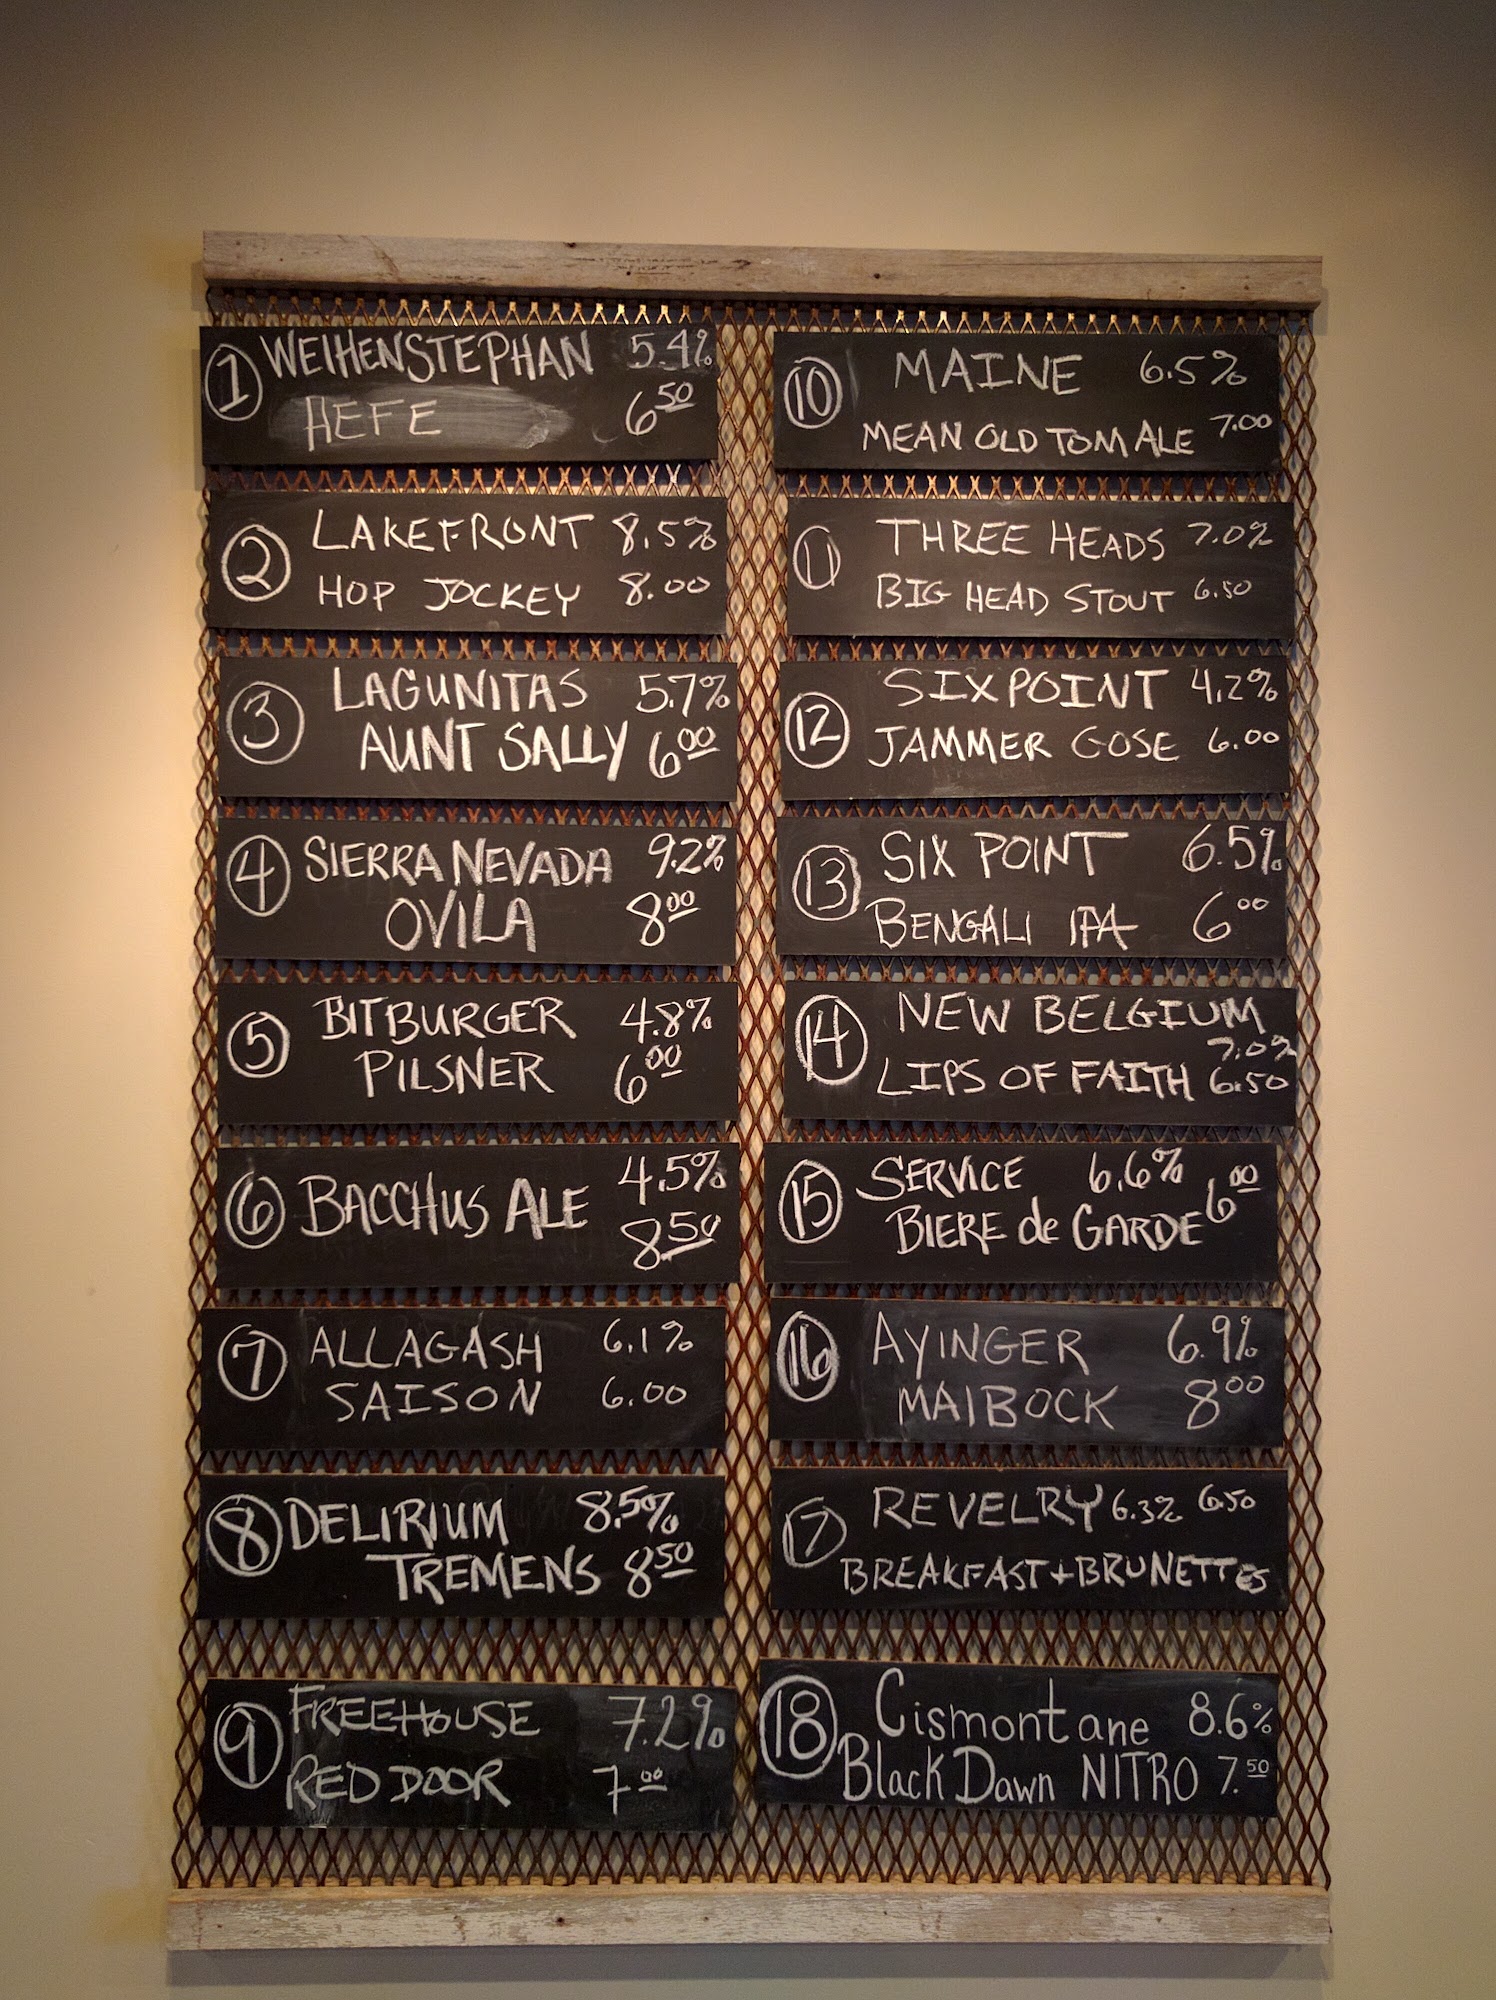 1 WEIHENSTEPHAN 5.4%
HEFE 6 50
2 LAKEFRONT 8.5%
HOP JOCKEY 8.00
3 LAGUNITAS 5.7%
AUNT SALLY 6 00
4 SIERRA NEVADA 9.2%
OVILA 8 00
5 BITBURGER 4.8%
PILSNER 6 00
6 BACCHUS ALE 4.5%
8 50
7 ALLAGASH 6.1%
SAISON 6.00
8 DELIRIUM 8.5%
TREMENS 8 50
9 FREEHOUSE 7.2%
RED DOOR 7 00
10 MAINE 6.5%
MEAN OLD TOM ALE 7.00
11 THREE HEADS 7.0%
BIG HEAD STOUT 6.50
12 SIXPOINT 4.2%
JAMMER GOSE 6.00
13 SIX POINT 6.5%
BENGALI IPA 6 00
14 NEW BELGIUM
7.0%
LIPS OF FAITH 6.50
15 SERVICE 6.6% 6 00
BIERE de GARDE
16 AYINGER 6.9%
MAIBOCK 8 00
17 REVELRY 6.3% 6.50
BREAKFAST+BRUNETTES
18 Cismontane 8.6%
Black Dawn NITRO 7.50